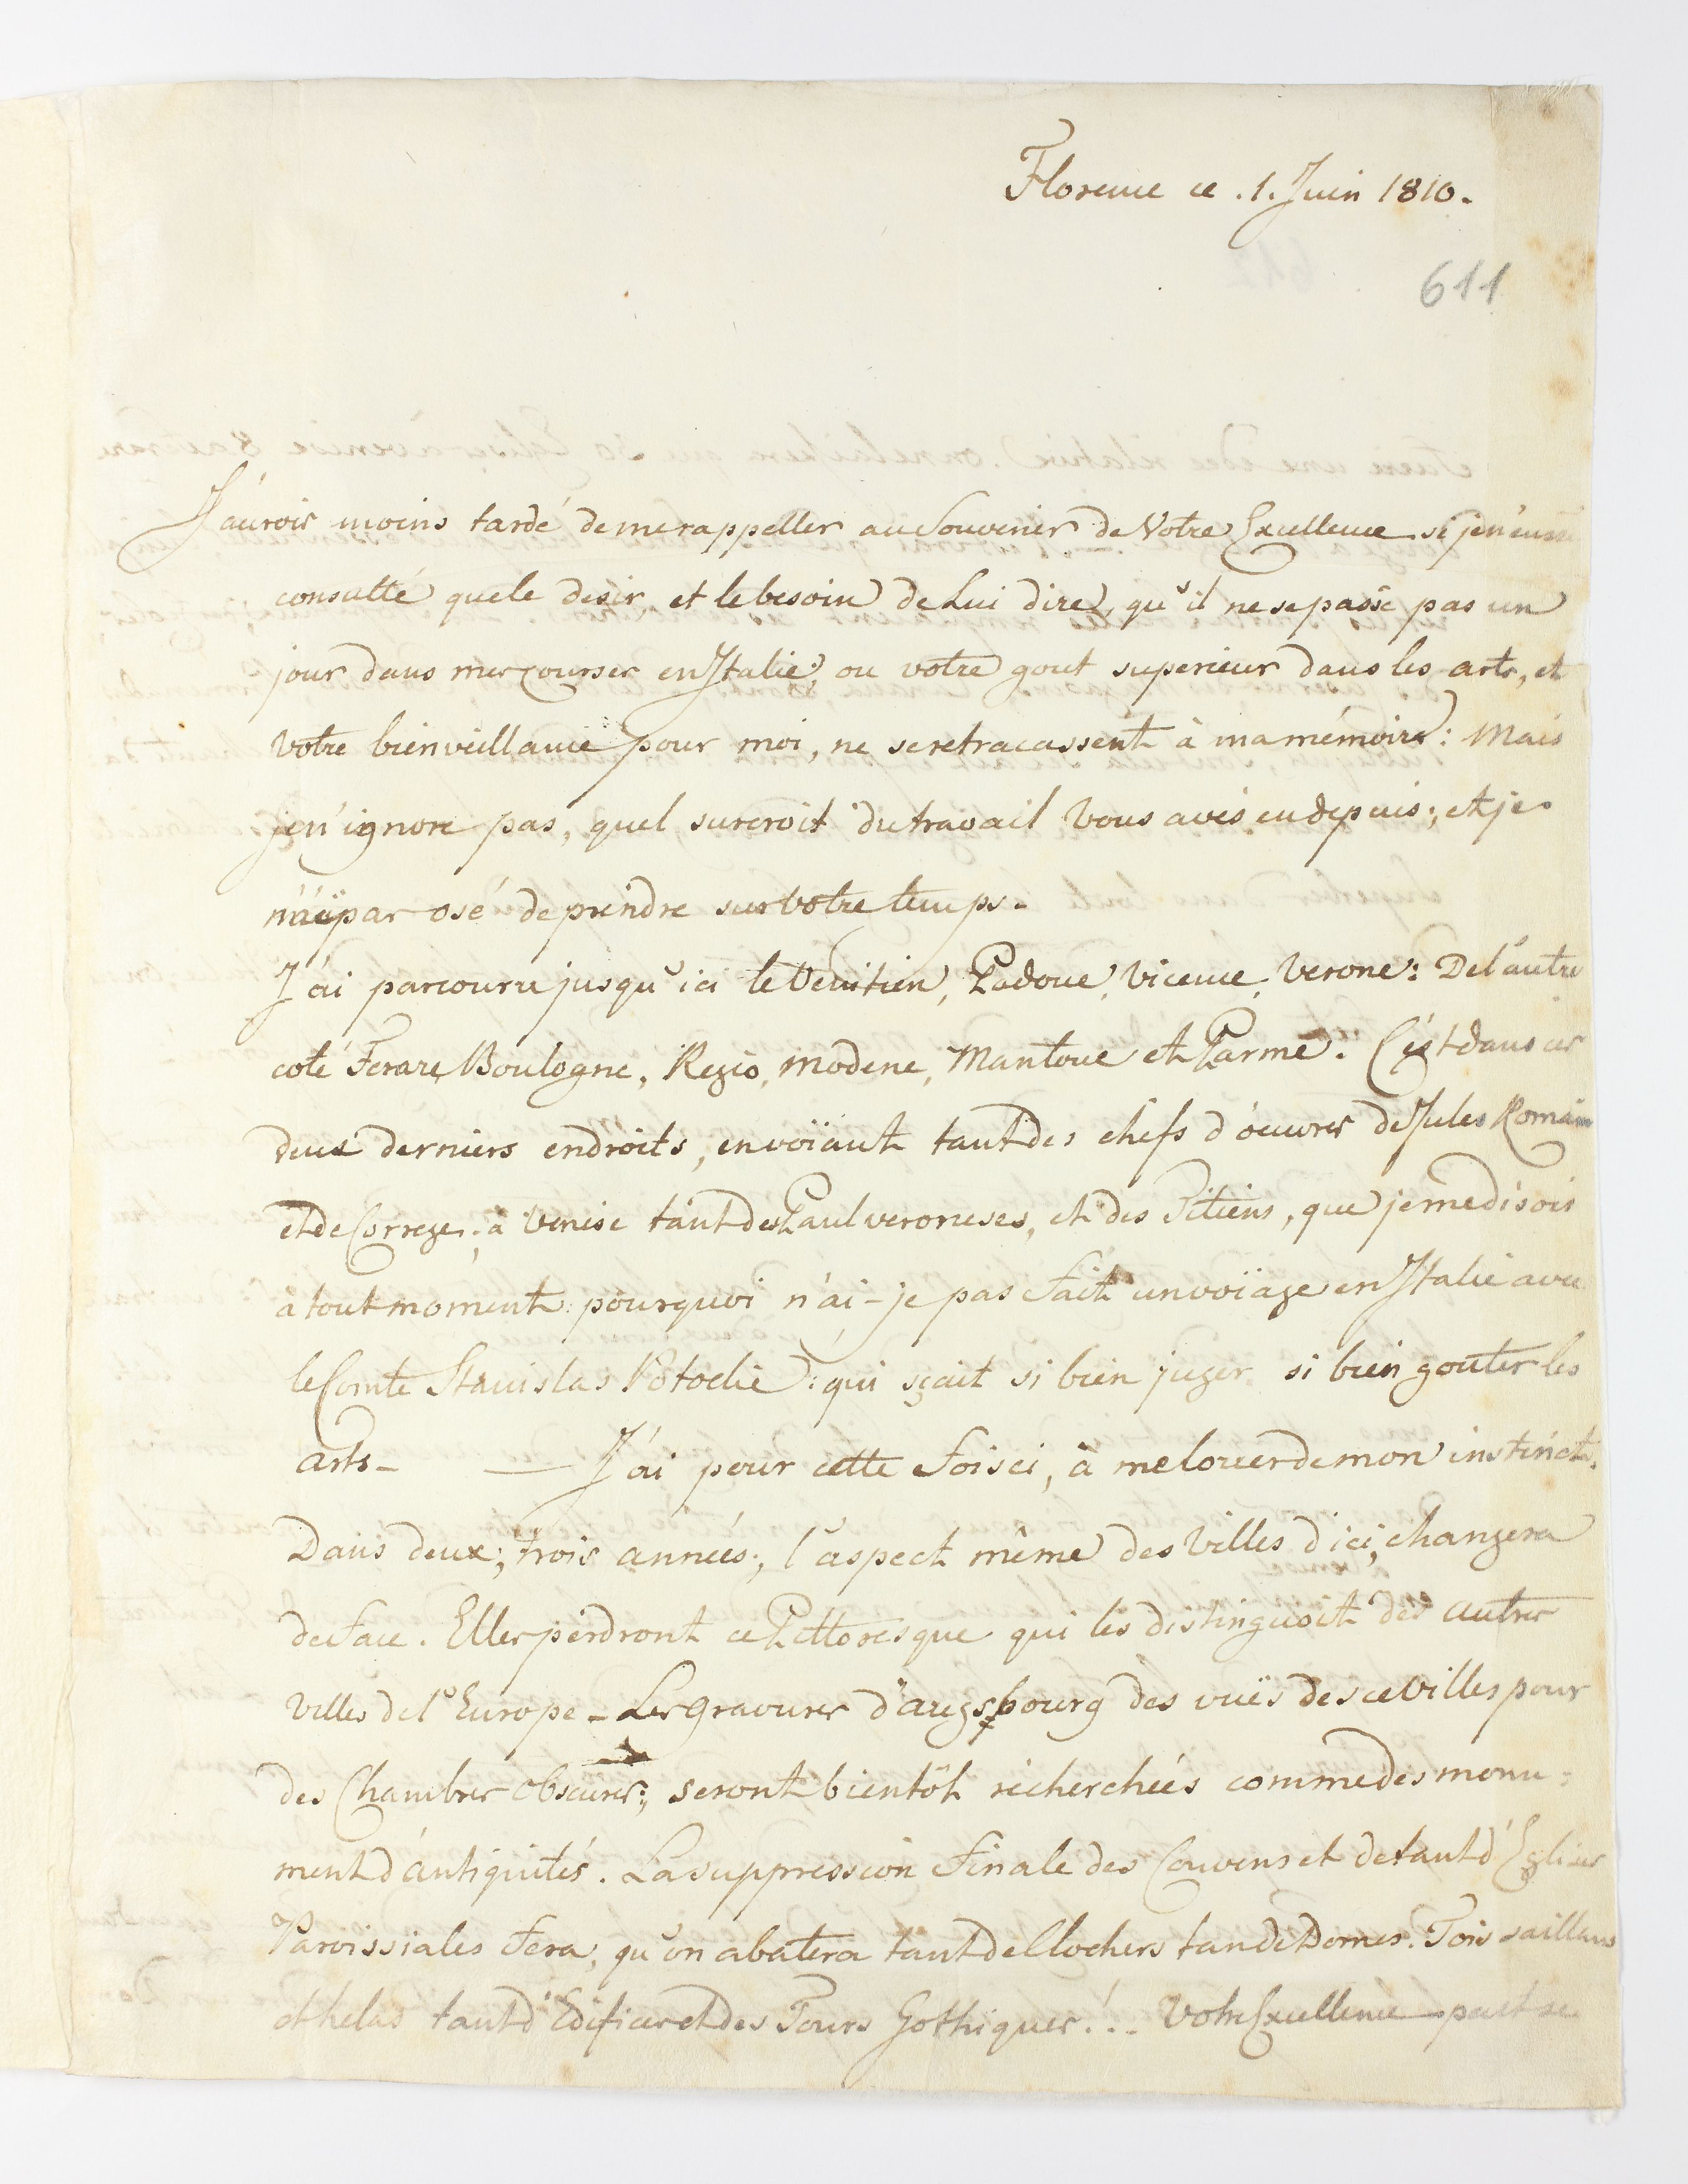 Florence ce .1. Juin 1810.
611
J'aurois moins tardé de me rappeller au Souvenir de Votre Excellence si je n'eusse
consulté que le desir, et le besoin de Lui dire, qu'il ne se passe pas un
jour dans mes courses en Italie, ou votre gout superieur dans les arts, et
votre bienveillance pour moi, ne se retracassent à ma mémoire: Mais
je n'ignore pas, quel surcroit du travail Vous avés eu depuis; et je
n'ai pas osé de prendre sur votre temps.
J'ai parcouru jusqu'ici le Venitien, Padoue, Vicence, Verone: De l'autre
coté Ferare, Boulogne, Regio, Modene, Mantoue et Parme. C'est dans ces
deux derniers endroits, en voïant tant des chefs d'oeuvres de Jules Romain
et de Correge; à Venise tant des Paul veroneses, et des Titiens, que je me disois
à tout moment: pourquoi n'ai-je pas fait un voïage en Italie avec
le Comte Stanislas Potocki: qui sçait si bien juger, si bien gouter les
arts - — J'ai pour cette fois ci, à me louer de mon instinct.
Dans deux; trois années; l'aspect même des Villes d'ici, changera
de face. Elles perdront ce Pittoresque qui les distinguoit des autres
Villes de l'Europe - Les gravures d'augsbourg des vuës de ce villes pour
des Chambres Obscures; seront bientôt récherchées comme des monu-
ment d'antiquités. La suppression finale des Couvens et de tant d'Eglises
Paroissiales fera, qu'on abatera tant de Clochers tan de Domes. Tois saillans
et helas tant d'Edifices et des Tours Gothiques!.. Votre Excellence peut se